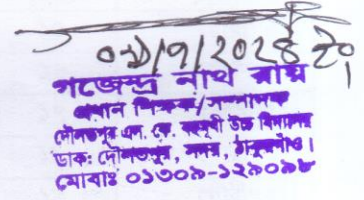 ০৯/৭/২০২৪ ইং।
গজেন্দ্র নাথ রায়
প্রধান শিক্ষক/সম্পাদক
দৌলতপুর এস, কে, বহুমুখী উচ্চ বিদ্যালয়
ডাক: দৌলতপুর, সদর, ঠাকুরগাঁও।
মোবাঃ ০১৩০৯-১২৯০৯৮